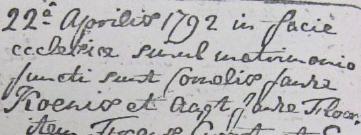 22ª Aprilis 1792 in facie
ecclesiæ simul matrimonio
juncti sunt Cornelis Janse
Troenis et Aagt Janse